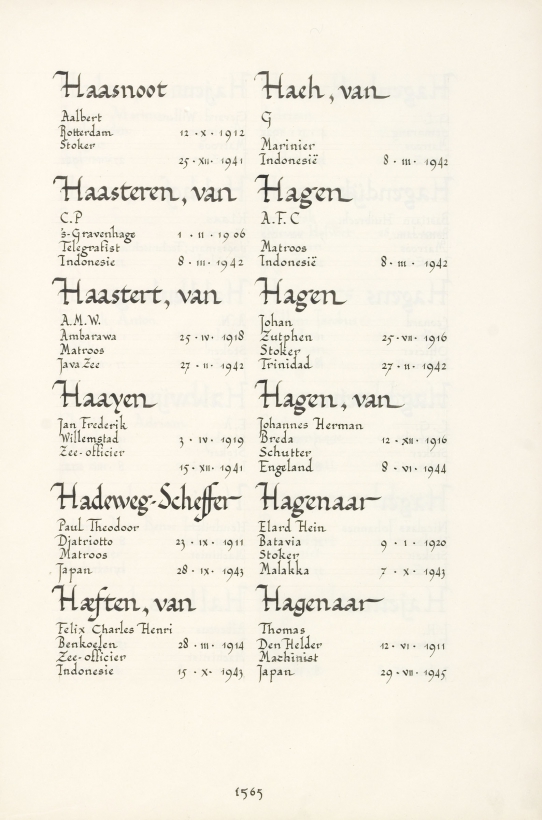 Haasnoot
Aalbert
Rotterdam 12 · x · 1912
Stoker
25 · xii · 1941
Haasteren, van
C.P
's-Gravenhage 1 · ii · 1906
Telegrafist
Indonesie 8 · iii · 1942
Haastert, van
A.M.W.
Ambarawa 25 · iv · 1918
Matroos
Java Zee 27 · ii · 1942
Haayen
Jan Frederik
Willemstad 3 · iv · 1919
Zee-officier
15 · xii · 1941
Hadeweg-Scheffer
Paul Theodoor
Djatriotto 23 · ix · 1911
Matroos
Japan 28 · ix · 1943
Hæften, van
Felix Charles Henri
Benkoelen 28 · iii · 1914
Zee-officier
Indonesie 15 · x · 1943
Hach, van
G
Marinier
Indonesië 8 · iii · 1942
Hagen
A.F.C
Matroos
Indonesië 8 · iii · 1942
Hagen
Johan
Zutphen 25 · vii · 1916
Stoker
Trinidad 27 · ii · 1942
Hagen, van
Johannes Herman
Breda 12 · xii · 1916
Schutter
Engeland 8 · vi · 1944
Hagenaar
Elard Hein
Batavia 9 · 1 · 1920
Stoker
Malakka 7 · x · 1943
Hagenaar
Thomas
Den Helder 12 · vi · 1911
Machinist
Japan 29 · vii · 1945
1565